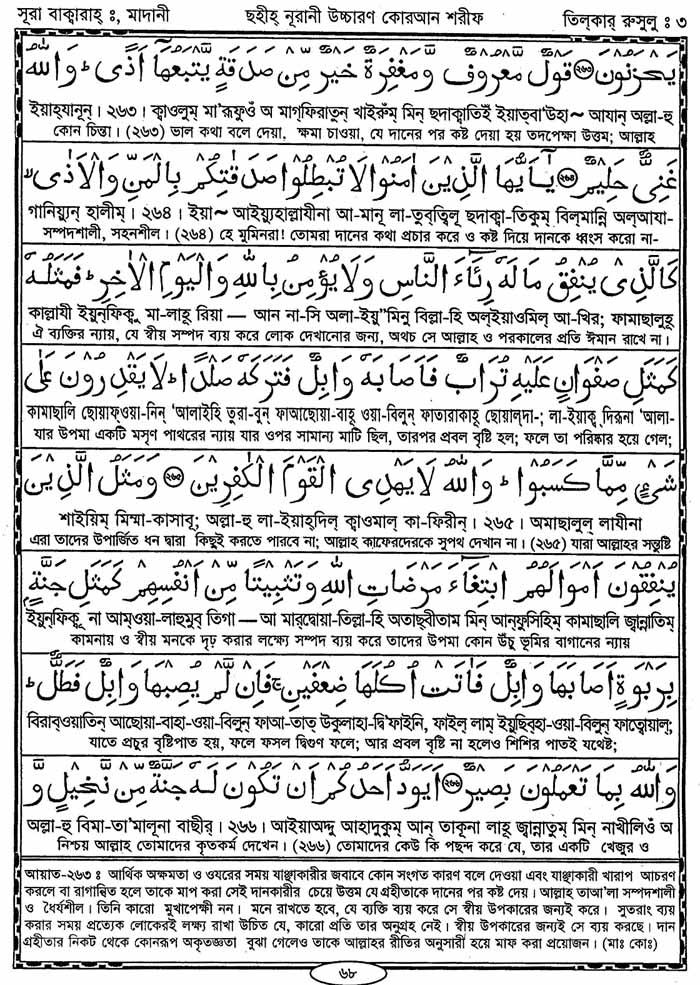 সূরা বাক্বারাহ্ ঃ, মাদানী ছহীহ্ নূরানী উচ্চারণ কোরআন শরীফ তিল্‌কার্ রুসুলু ঃ ৩
يَحْزَنُوْنَ ۝۲۶۲ قَوْلٌ مَّعْرُوْفٌ وَّمَغْفِرَةٌ خَيْرٌ مِّنْ صَدَقَةٍ يَّتْبَعُهَاۤ اَذًى ؕ وَاللّٰهُ
ইয়াহ্‌যানূন্। ২৬৩। ক্বাওলুম্ মা'রূফুওঁ অ মাগ্‌ফিরাতুন্ খাইরুঁম্ মিন্ ছদাক্বাতিইঁ ইয়াত্‌বা'উহা~ আযান্ অল্লা-হু
কোন চিন্তা। (২৬৩) ভাল কথা বলে দেয়া, ক্ষমা চাওয়া, যে দানের পর কষ্ট দেয়া হয় তদপেক্ষা উত্তম; আল্লাহ
غَنِىٌّ حَلِيْمٌ ۝۲۶۳ يٰۤاَيُّهَا الَّذِيْنَ اٰمَنُوْا لَا تُبْطِلُوْا صَدَقٰتِكُمْ بِالْمَنِّ وَالْاَذٰى ۙ
গানিয়্যুন্ হালীম্। ২৬৪। ইয়া~ আইয়্যুহাল্লাযীনা আ-মানূ লা-তুব্‌ত্বিলূ ছদাক্বা-তিকুম্ বিল্‌মান্নি অল্‌আযা-
সম্পদশালী, সহনশীল। (২৬৪) হে মুমিনরা! তোমরা দানের কথা প্রচার করে ও কষ্ট দিয়ে দানকে ধ্বংস করো না-
كَالَّذِىْ يُنْفِقُ مَالَهٗ رِئَآءَ النَّاسِ وَلَا يُؤْمِنُ بِاللّٰهِ وَالْيَوْمِ الْاٰخِرِ ؕ فَمَثَلُهٗ
কাল্লাযী ইয়ুন্‌ফিকু মা-লাহূ রিয়া — আন না-সি অলা-ইয়ু"মিনু বিল্লা-হি অল্‌ইয়াওমিল্ আ-খির্; ফামাছালুহূ
ঐ ব্যক্তির ন্যায়, যে স্বীয় সম্পদ ব্যয় করে লোক দেখানোর জন্য, অথচ সে আল্লাহ ও পরকালের প্রতি ঈমান রাখে না।
كَمَثَلِ صَفْوَانٍ عَلَيْهِ تُرَابٌ فَاَصَابَهٗ وَابِلٌ فَتَرَكَهٗ صَلْدًا ؕ لَا يَقْدِرُوْنَ عَلٰى
কামাছালি ছোয়াফ্‌ওয়া-নিন্ 'আলাইহি তুরা-বুন্ ফাআছোয়া-বাহূ ওয়া-বিলুন্ ফাতারাকাহূ ছোয়াল্‌দা-; লা-ইয়াক্‌দিরূনা 'আলা-
যার উপমা একটি মসৃণ পাথরের ন্যায় যার ওপর সামান্য মাটি ছিল, তারপর প্রবল বৃষ্টি হল; ফলে তা পরিষ্কার হয়ে গেল;
شَىْءٍ مِّمَّا كَسَبُوْا ؕ وَاللّٰهُ لَا يَهْدِى الْقَوْمَ الْكٰفِرِيْنَ ۝۲۶۴ وَمَثَلُ الَّذِيْنَ
শাইয়িম্ মিম্মা-কাসাবূ; অল্লা-হু লা-ইয়াহ্‌দিল্ ক্বাওমাল্ কা-ফিরীন্। ২৬৫। অমাছালুল্ লাযীনা
এরা তাদের উপার্জিত ধন দ্বারা কিছুই করতে পারবে না; আল্লাহ কাফেরদেরকে সুপথ দেখান না। (২৬৫) যারা আল্লাহর সন্তুষ্টি
يُنْفِقُوْنَ اَمْوَالَهُمُ ابْتِغَآءَ مَرْضَاتِ اللّٰهِ وَتَثْبِيْتًا مِّنْ اَنْفُسِهِمْ كَمَثَلِ جَنَّةٍۭ
ইয়ুন্‌ফিক্বূ না আম্‌ওয়া-লাহুমুব্ তিগা — আ মার্‌দ্বোয়া-তিল্লা-হি অতাছ্‌বীতাম মিন্ আন্‌ফুসিহিম্ কামাছালি জ্বান্নাতিম্
কামনায় ও স্বীয় মনকে দৃঢ় করার লক্ষ্যে সম্পদ ব্যয় করে তাদের উপমা কোন উঁচু ভূমির বাগানের ন্যায়
بِرَبْوَةٍ اَصَابَهَا وَابِلٌ فَاٰتَتْ اُكُلَهَا ضِعْفَيْنِ ۚ فَاِنْ لَّمْ يُصِبْهَا وَابِلٌ فَطَلٌّ ؕ
বিরাব্‌ওয়াতিন্ আছোয়া-বাহা-ওয়া-বিলুন্ ফাআ-তাত্ উকুলাহা-দ্বি'ফাইনি, ফাইল্ লাম্ ইয়ুছিব্‌হা-ওয়া-বিলুন্ ফাত্বোয়াল্;
যাতে প্রচুর বৃষ্টিপাত হয়, ফলে ফসল দ্বিগুণ ফলে; আর প্রবল বৃষ্টি না হলেও শিশির পাতই যথেষ্ট;
وَاللّٰهُ بِمَا تَعْمَلُوْنَ بَصِيْرٌ ۝۲۶۵ اَيَوَدُّ اَحَدُكُمْ اَنْ تَكُوْنَ لَهٗ جَنَّةٌ مِّنْ نَّخِيْلٍ وَّ
অল্লা-হু বিমা-তা'মালূনা বাছীর্। ২৬৬। আইয়াঅদ্দু আহাদুকুম্ আন্ তাকূনা লাহূ জ্বান্নাতুম্ মিন্ নাখীলিওঁ অ
নিশ্চয় আল্লাহ তোমাদের কৃতকর্ম দেখেন। (২৬৬) তোমাদের কেউ কি পছন্দ করে যে, তার একটি খেজুর ও
আয়াত-২৬৩ ঃ আর্থিক অক্ষমতা ও ওযরের সময় যাঞ্ছাকারীর জবাবে কোন সংগত কারণ বলে দেওয়া এবং যাঞ্ছাকারী খারাপ আচরণ
করলে বা রাগান্বিত হলে তাকে মাপ করা সেই দানকারীর চেয়ে উত্তম যে গ্রহীতাকে দানের পর কষ্ট দেয়। আল্লাহ তাআ'লা সম্পদশালী
ও ধৈর্যশীল। তিনি কারো মুখাপেক্ষী নন। মনে রাখতে হবে, যে ব্যক্তি ব্যয় করে সে স্বীয় উপকারের জন্যই করে। সুতরাং ব্যয়
করার সময় প্রত্যেক লোকেরই লক্ষ্য রাখা উচিত যে, কারো প্রতি তার অনুগ্রহ নেই। স্বীয় উপকারের জন্যই সে ব্যয় করছে। দান
গ্রহীতার নিকট থেকে কোনরূপ অকৃতজ্ঞতা বুঝা গেলেও তাকে আল্লাহর রীতির অনুসারী হয়ে মাফ করা প্রয়োজন। (মাঃ কোঃ)
৬৮